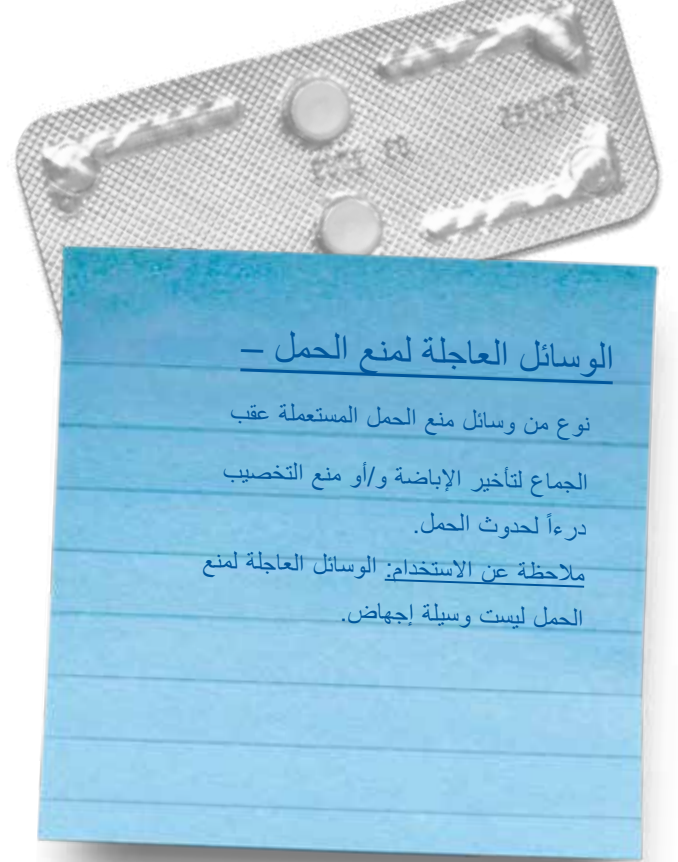 الوسائل العاجلة لمنع الحمل –
نوع من وسائل منع الحمل المستعملة عقب
الجماع لتأخير الإباضة و/أو منع التخصيب
درءاً لحدوث الحمل.
ملاحظة عن الاستخدام: الوسائل العاجلة لمنع
الحمل ليست وسيلة إجهاض.